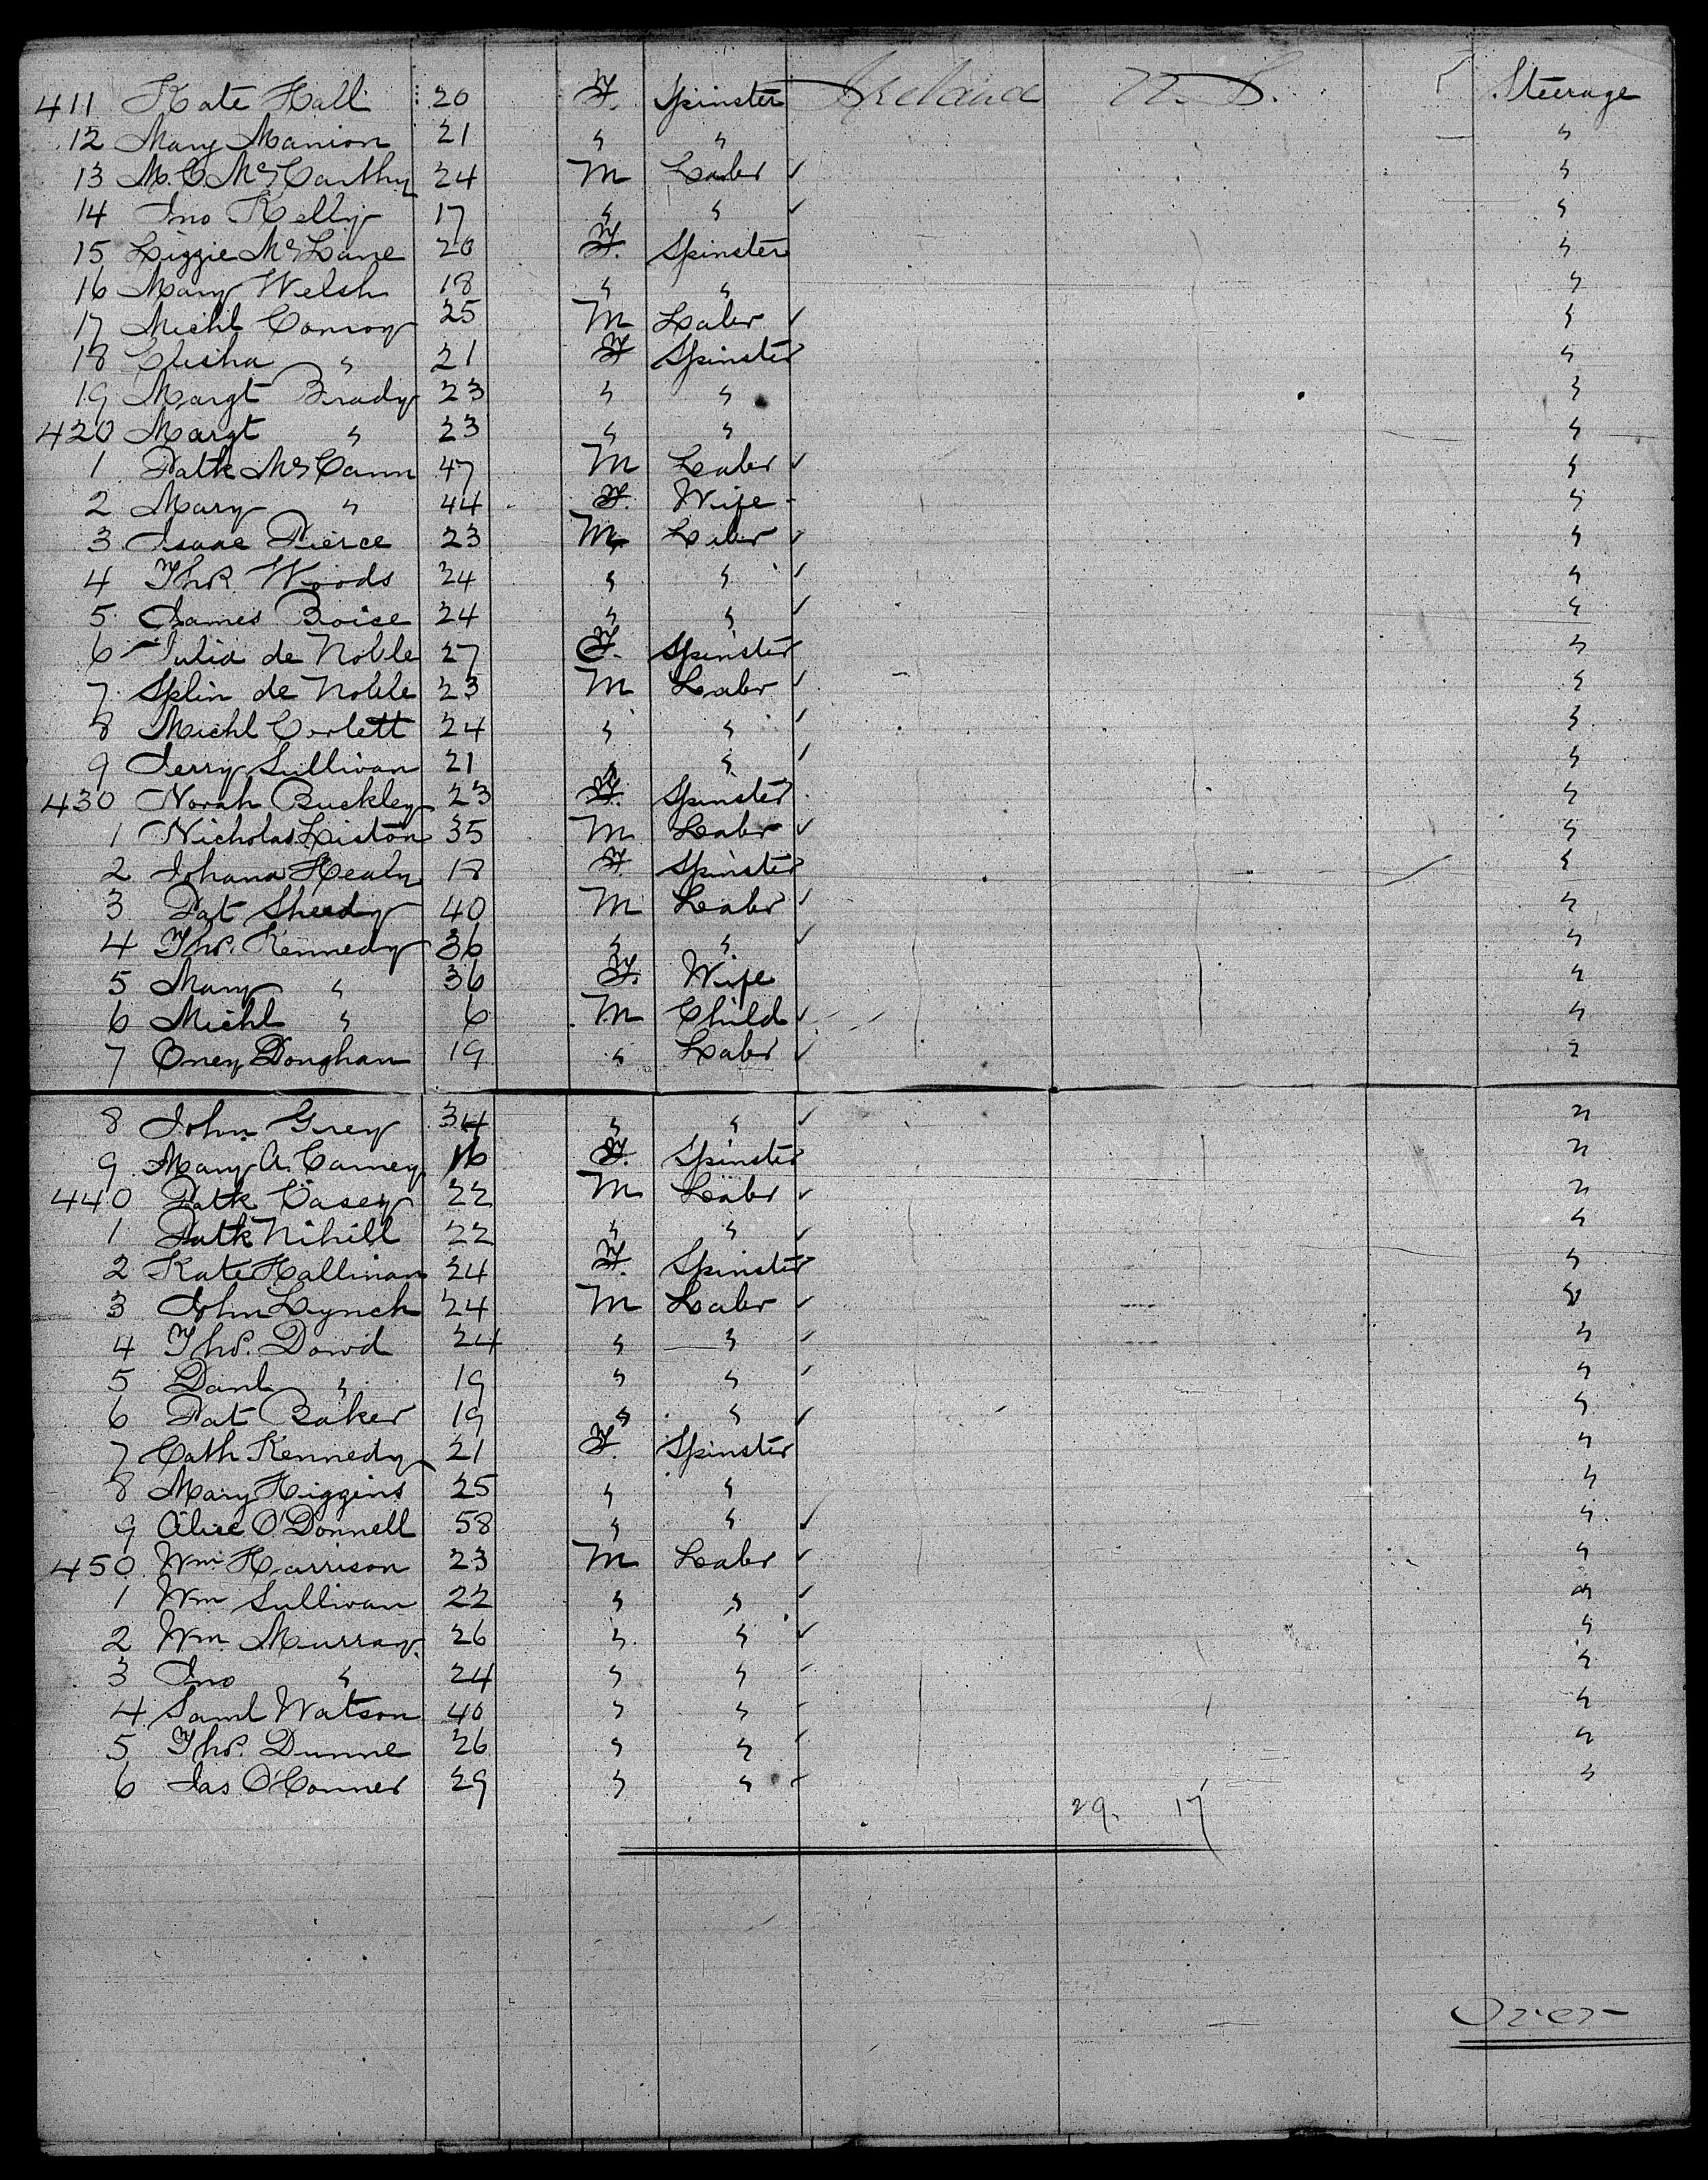 411 Kate Hall 20 F. Spinster Ireland U. S. Steerage
12 Mary Manion 21 " " "
13 M. C. McCarthy 24 M Labr ✓ "
14 Jno Kelly 17 " " ✓ "
15 Lizzie McLane 20 F. Spinster "
16 Mary Welsh 18 " " "
17 Michl Conroy 25 M Labr ✓ "
18 Elisha " 21 F Spinster "
19 Margt Brady 23 " " "
420 Margt " 23 " " "
1 Patk McCann 47 M Labr ✓ "
2 Mary " 44 F. Wife "
3 Isaac Pierce 23 M Labr ✓ "
4 Thos. Woods 24 " " ✓ "
5 James Boice 24 " " ✓ "
6 Julia de Noble 27 F. Spinster "
7 Splin de Noble 23 M Labr ✓ "
8 Michl Corlett 24 " " ✓ "
9 Jerry Sullivan 21 " " ✓ "
430 Norah Buckley 23 F. Spinster "
1 Nicholas Liston 35 M Labr ✓ "
2 Johana Healy 18 F. Spinster "
3 Pat Sheedy 40 M Labr ✓ "
4 Thos. Kennedy 36 " " ✓ "
5 Mary " 36 F. Wife "
6 Michl " 6 M Child ✓ "
7 Oney Donghan 19 " Labr ✓ "
8 John Grey 34 " " ✓ "
9 Mary A. Carney 16 F. Spinster "
440 Patk Casey 22 M Labr ✓ "
1 Patk Nihill 22 " " ✓ "
2 Kate Hallinan 24 F. Spinster "
3 John Lynch 24 M Labr ✓ "
4 Thos. Dowd 24 " " ✓ "
5 Danl " 19 " " ✓ "
6 Pat Baker 19 " " ✓ "
7 Cath Kennedy 21 F. Spinster "
8 Mary Higgins 25 " " "
9 Alice O'Donnell 58 " " ✓ "
450 Wm Harrison 23 M Labr ✓ "
1 Wm Sullivan 22 " " ✓ "
2 Wm. Murray 26 " " ✓ "
3 Jno " 24 " " ✓ "
4 Saml Watson 40 " " ✓ "
5 Thos. Dunne 26 " " ✓ "
6 Jas O'Conner 29 " " ✓ "
29. 17
Over